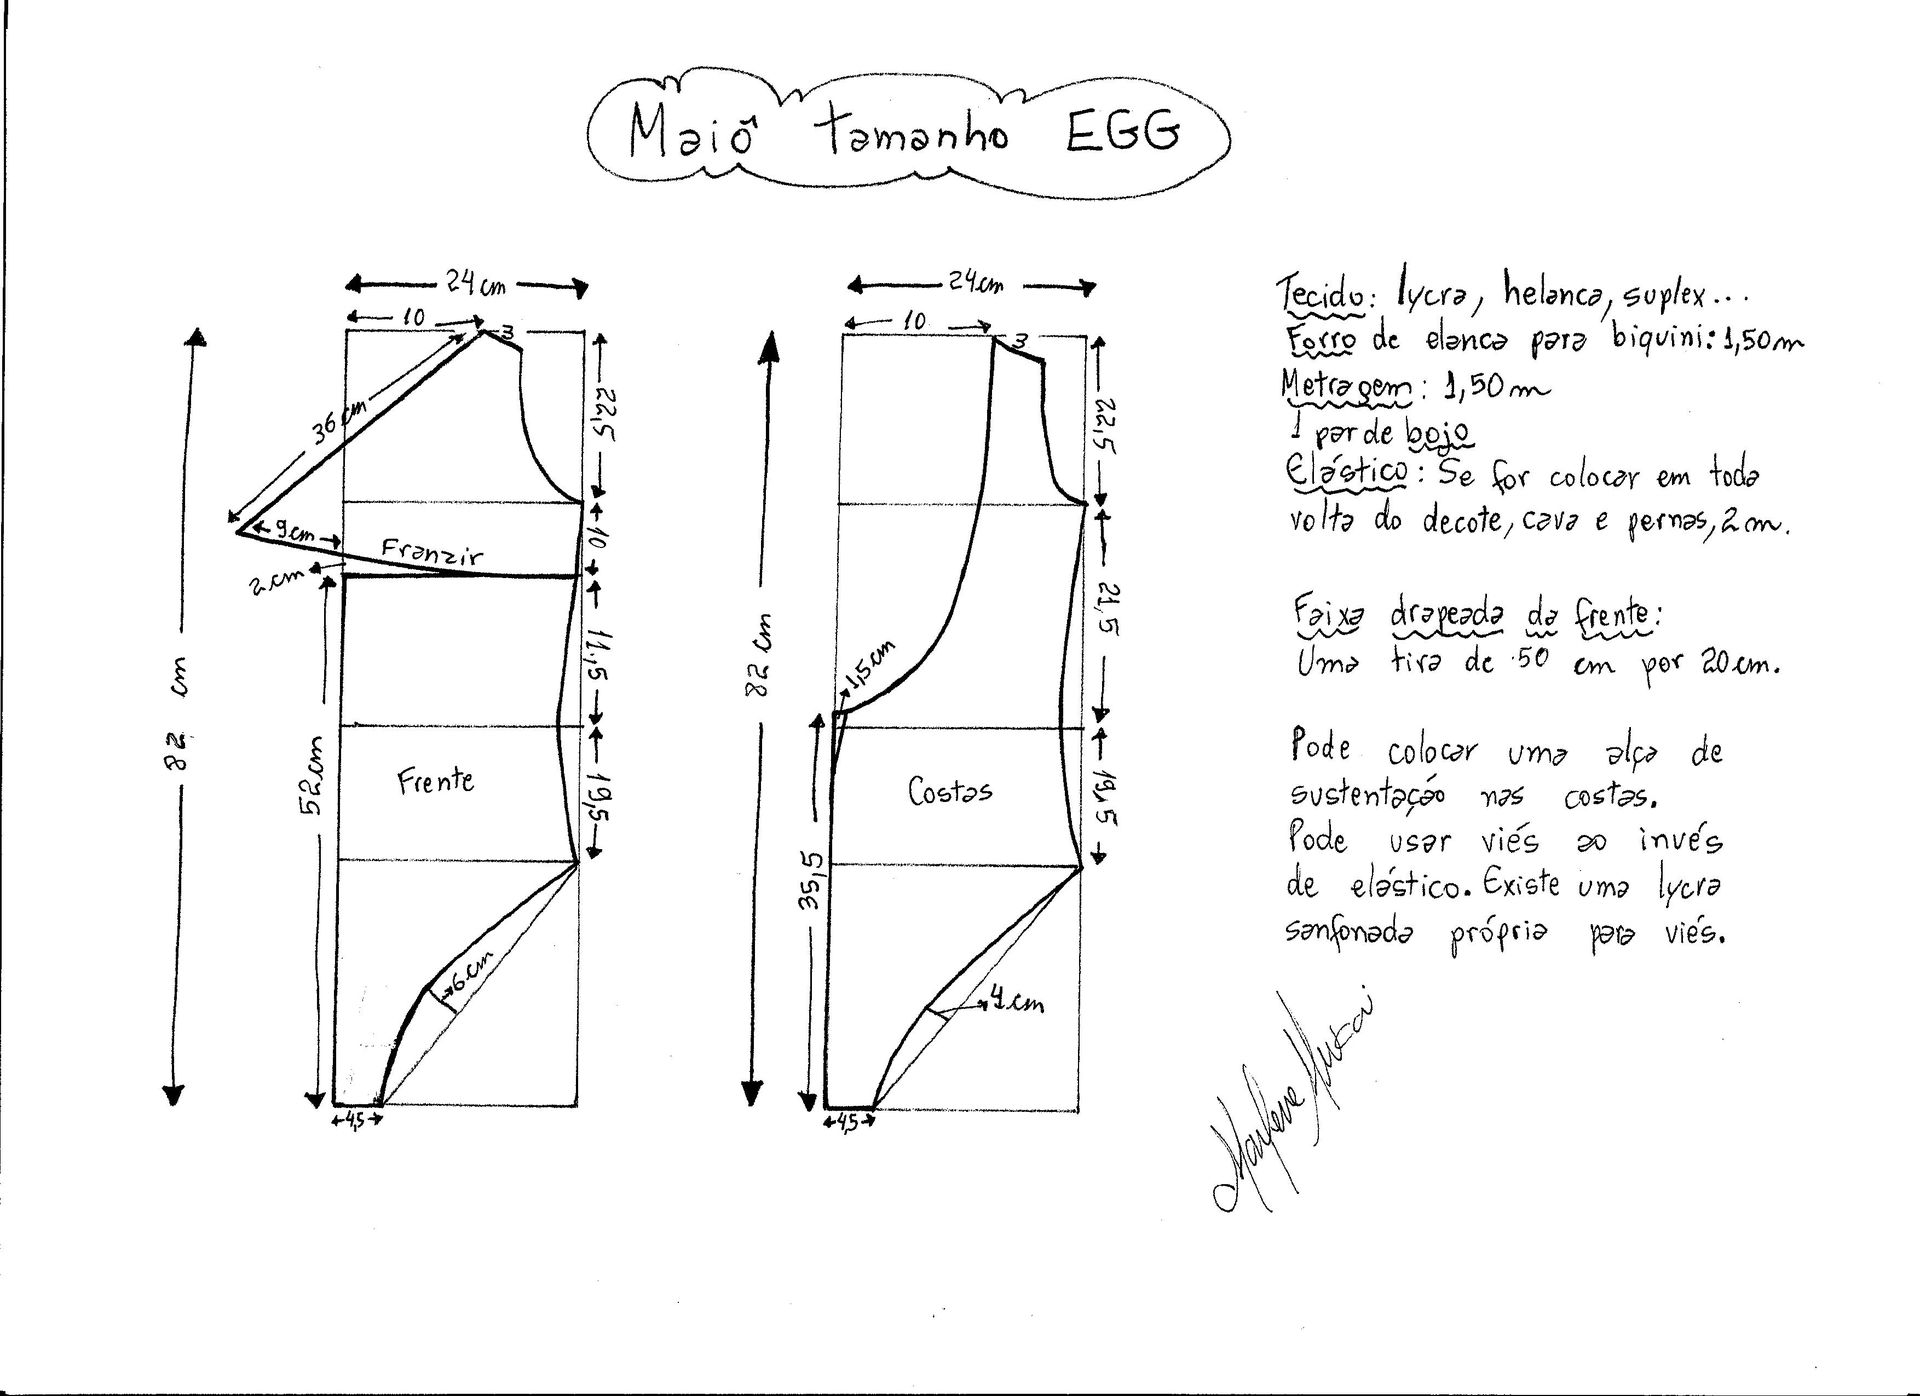 Maiô tamanho EGG
24 cm
10
3
36 cm
22,5
9 cm
Franzir
10
2 cm
11,5
82 cm
52 cm
Frente
19,5
6 cm
4,5
24 cm
10
3
22,5
21,5
82 cm
1,5 cm
Costas
19,5
35,5
4 cm
4,5
Tecido: lycra, helanca, suplex...
Forro de elanca para biquini: 1,50 m
Metragem: 1,50 m
1 par de bojo
Elástico: Se for colocar em toda
volta do decote, cava e pernas, 2 m.
Faixa drapeada da frente:
Uma tira de 50 cm por 20 cm.
Pode colocar uma alça de
sustentação nas costas.
Pode usar viés ao invés
de elástico. Existe uma lycra
sanfonada própria para viés.
Marlene Mukai